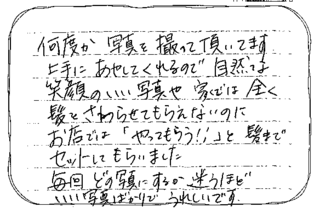 何度か 写真を 撮って頂いてます
上手に あやしてくれるので 自然な
笑顔の いい写真や 家では 全く
髪を さわらせてもらえないのに
お店では 「やってもらう!!」と 髪まで
セットしてもらいました
毎回 どの写真にするか 迷うほど
いい写真ばかりで うれしいです